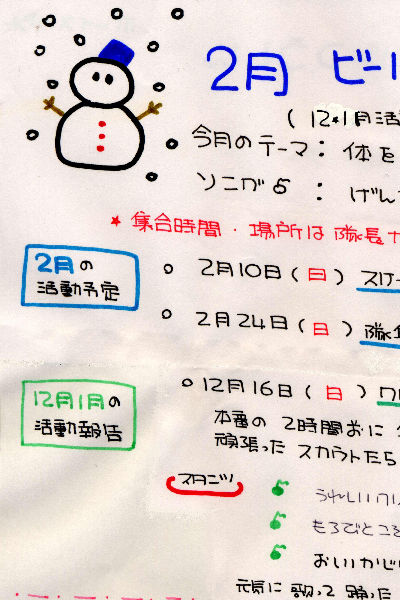 2月 ビー
(12•1月活
今月のテーマ: 体を
ソニグ♪ : げん
★集合時間・場所は隊長
2月の
活動予定
○ 2月10日(日) スケー
○ 2月24日(日) 隊
12月1月の
活動報告
○12月16日(日) ワ
本番の 2時間前に
頑張った スカウトたち
スタンツ
♪ うれしい
♪ もろびとこぞ
♪ おいかじ
元気に 歌って 踊った